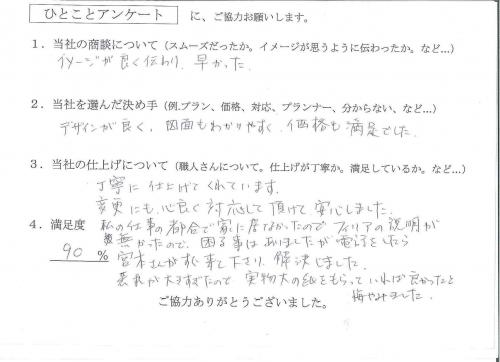 ひとことアンケート に、ご協力お願いします。
1．当社の商談について（スムーズだったか。イメージが思うように伝わったか。など…）
イメージが良く伝わり、早かった。
2．当社を選んだ決め手（例.プラン、価格、対応、プランナー、分からない、など…）
デザインが良く、図面もわかりやすく、価格も満足でした。
3．当社の仕上げについて（職人さんについて。仕上げが丁寧か。満足しているか。など…）
丁寧に仕上げてくれています。
変更にも心良く対応して頂けて安心しました。
4．満足度 私の仕事の都合で家に居なかったのでフィリアの説明が
90 % 無かったので、困る事はありましたが電話をしたら
宮本さんがすぐ来て下さり、解決しました。
表札が大きすぎたので 実物大の紙をもらっていれば良かったと
悔やみました。
ご協力ありがとうございました。